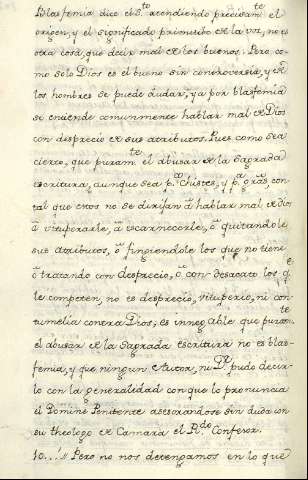 Blasfemia dice el S.to atendiendo precisam.te el
origen, y el significado primitibo de la voz, no es
otra cosa, que decir mal de los buenos. Pero co-
mo solo Dios es el bueno sin controversia, y de
los hombres se puede dudar, ya por blasfemia
se entiende comunmente hablar mal de Dios
con desprecio de sus atributos. Pues como sea
cierto, que puram.te el abusar de la Sagrada
escritura, aunque sea p.a chistes, y p.a con
tal que estos no se dirijan á hablar mal de dios
á vituperarle, á escarnecerle, ó quitandole
sus atributos, ó fingiendole los que no tiene
ó tratando con desprecio, ó con desacato los q.e
le competen, no es desprecio, vituperio, ni con-
tumelia contra Dios, es innegable que puram.te
el abusar de la Sagrada escritura no es blas-
femia, y que ningun Autor, ni D.r pudo decir-
lo con la generalidad con que lo pronuncia
el Domine Penitente asesorandose sin duda con
su theologo de Camara el R.do Confesor.
10 Pero no nos detengamos en lo que